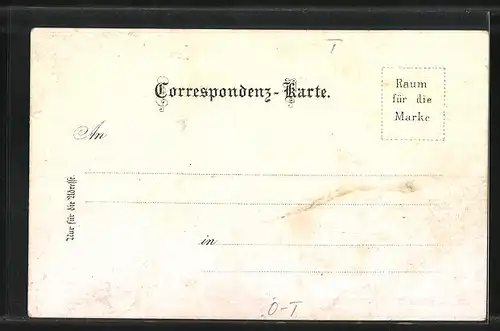 T
Correspondenz-Karte.
Raum
für die
Marke
An
Nur für die Adresse.
in
O-T